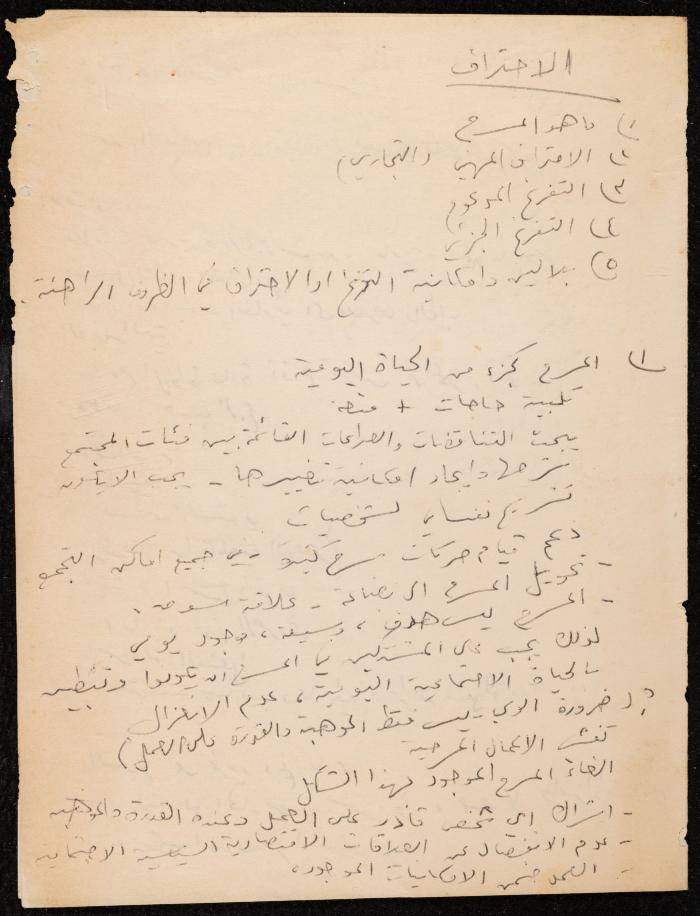 الاحتراف
١) ما هو المسرح
٢) الاحتراف المهني والتجاري)
٣) التفرغ الموعود
٤) التفرغ الجزئي
٥) بلالين وامكانية التفرغ او الاحتراف في الظروف الراهنة.
١) المسرح كجزء من الحياة اليومية
تلبية حاجات + متعة
يبحث التناقضات والصراعات القائمة بين فئات المجتمع
شرحها وايجاد امكانية تغييرها - يجب الا يكون
تشريح نفساني لشخصيات
- دعم قيام حركات مسرح في جميع اماكن التجمع
- تحويل المسرح الى بضاعة - علاقة
المسرح ليس هدف، وسيلة، وجود يومي
لذلك يجب على المشتركين في المسرح ان يكونوا
بالحياة الاجتماعية اليومية، عدم الانعزال
ضرورة الوعي - ليس فقط الموهبة والقدرة على العمل)
الاعمال المسرحية
الغاء المسرح الموجود بهذا الشكل
- اشراك اي شخص قادر على العمل وعنده القدرة والموهبة
- عدم الانفصال عن العلاقات الاقتصادية السياسية الاجتماعية
- العمل ضمن الامكانيات الموجودة.